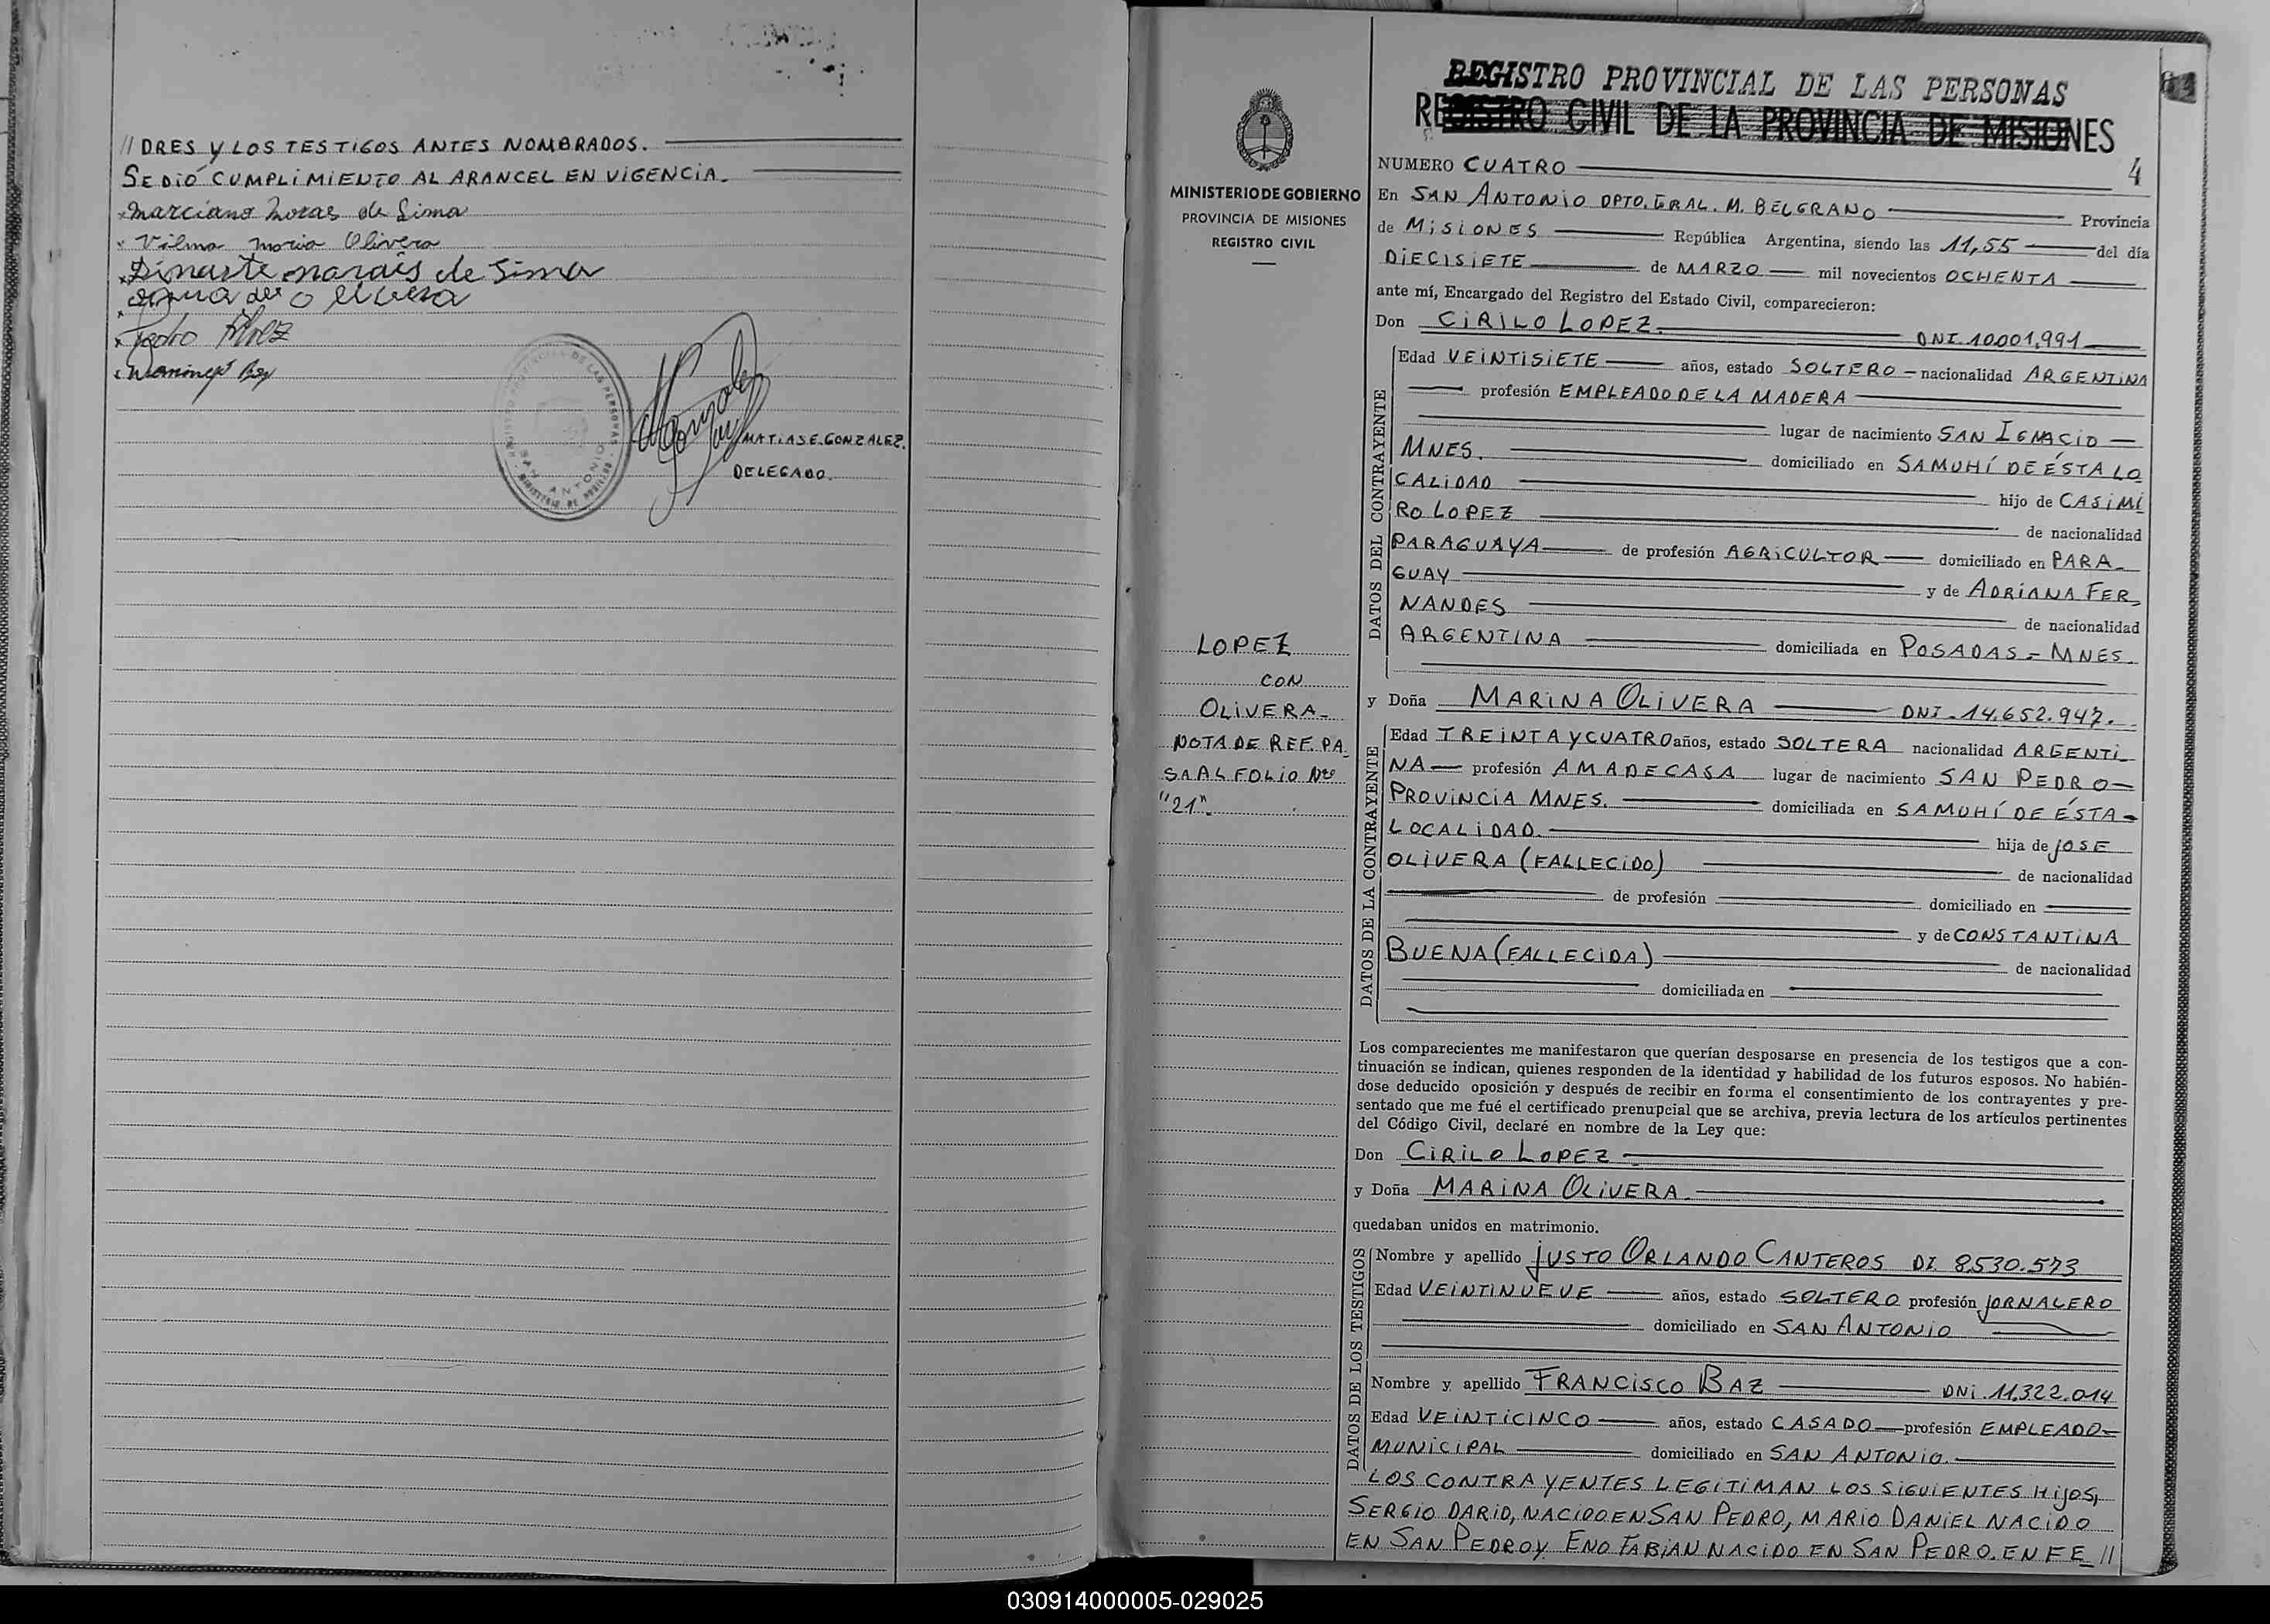 // DRES Y LOS TESTIGOS ANTES NOMBRADOS.
SE DIÓ CUMPLIMIENTO AL ARANCEL EN VIGENCIA.
Marciano Moras de Lima
Vilma Maria Olivera
Dinarte marais de Lima
Pedro
MATIAS E. GONZALEZ.
DELEGADO.
SAN ANTONIO
MINISTERIO DE GOBIERNO
PROVINCIA DE MISIONES
REGISTRO CIVIL
LOPEZ
CON
OLIVERA
NOTA DE REF. PA
SA AL FOLIO Nro
"21"
REGISTRO PROVINCIAL DE LAS PERSONAS
REGISTRO CIVIL DE LA PROVINCIA DE MISIONES
NUMERO CUATRO 4
En SAN ANTONIO DPTO. GRAL. M. BELGRANO Provincia
de MISIONES República Argentina, siendo las 11,55 del día
DIECISIETE de MARZO mil novecientos OCHENTA
ante mí, Encargado del Registro del Estado Civil, comparecieron:
Don CIRILO LOPEZ. DNI. 10.001.991
DATOS DEL CONTRAYENTE
Edad VEINTISIETE años, estado SOLTERO nacionalidad ARGENTINA
profesión EMPLEADO DE LA MADERA
lugar de nacimiento SAN IGNACIO
MNES. domiciliado en SAMUHÍ DE ÉSTA LO
CALIDAD hijo de CASIMI
RO LOPEZ de nacionalidad
PARAGUAYA de profesión AGRICULTOR domiciliado en PARA
GUAY y de ADRIANA FER
NANDES de nacionalidad
ARGENTINA domiciliada en POSADAS - MNES
y Doña MARINA OLIVERA DNI. 14.652.947.
DATOS DE LA CONTRAYENTE
Edad TREINTA Y CUATRO años, estado SOLTERA nacionalidad ARGENTI
NA profesión AMA DE CASA lugar de nacimiento SAN PEDRO
PROVINCIA MNES. domiciliada en SAMUHÍ DE ÉSTA
LOCALIDAD. hija de JOSE
OLIVERA (FALLECIDO) de nacionalidad
de profesión domiciliado en
y de CONSTANTINA
BUENA (FALLECIDA) de nacionalidad
domiciliada en
Los comparecientes me manifestaron que querían desposarse en presencia de los testigos que a con-
tinuación se indican, quienes responden de la identidad y habilidad de los futuros esposos. No habién-
dose deducido oposición y después de recibir en forma el consentimiento de los contrayentes y pre-
sentado que me fué el certificado prenupcial que se archiva, previa lectura de los artículos pertinentes
del Código Civil, declaré en nombre de la Ley que:
Don CIRILO LOPEZ
y Doña MARINA OLIVERA.
quedaban unidos en matrimonio.
DATOS DE LOS TESTIGOS
Nombre y apellido JUSTO ORLANDO CANTEROS DI 8.530.573
Edad VEINTINUEVE años, estado SOLTERO profesión JORNALERO
domiciliado en SAN ANTONIO
Nombre y apellido FRANCISCO BAZ DNI. 11.322.014
Edad VEINTICINCO años, estado CASADO profesión EMPLEADO
MUNICIPAL domiciliado en SAN ANTONIO.
LOS CONTRAYENTES LEGITIMAN LOS SIGUIENTES HIJOS,
SERGIO DARIO, NACIDO EN SAN PEDRO, MARIO DANIEL NACIDO
EN SAN PEDRO Y ENO FABIAN NACIDO EN SAN PEDRO. EN FE //
030914000005-029025